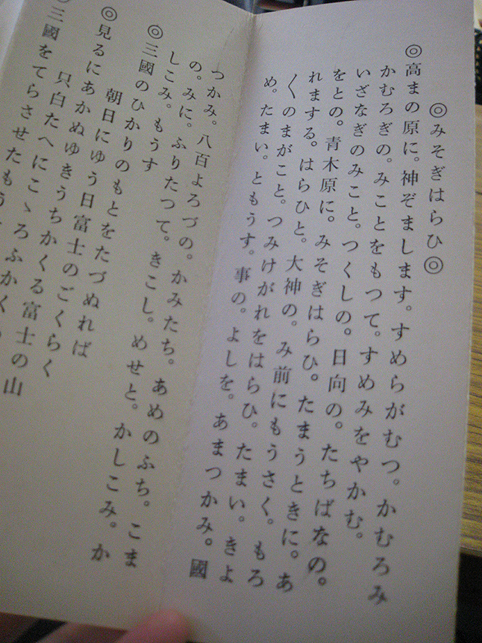 ◎みそぎはらひ◎
◎高まの原に。神ぞまします。すめらがむつ。かむろみ
かむろぎの。みことをもつて。すめみをやかむ。
いざなぎのみこと。つくしの。日向の。たちばなの。
をとの。青木原に。みそぎはらひ。たまうときに。あ
れまする。はらひと。大神の。み前にもうさく。もろ
〱のまがこと。つみけがれをはらひ。たまい。きよ
め。たまい。ともうす。事の。よしを。あまつかみ。國
つかみ。八百よろづの。かみたち。あめのふち。こま
の。みに。ふりたつて。きこし。めせと。かしこみ。か
しこみ。もうす
◎三國のひかりのもとをたづぬれば
朝日にゆう日富士のごくらく
◎見るにあかぬゆきうちかくる富士の山
只白たへにこゝろふかくの
◎三國をてらさせたもう